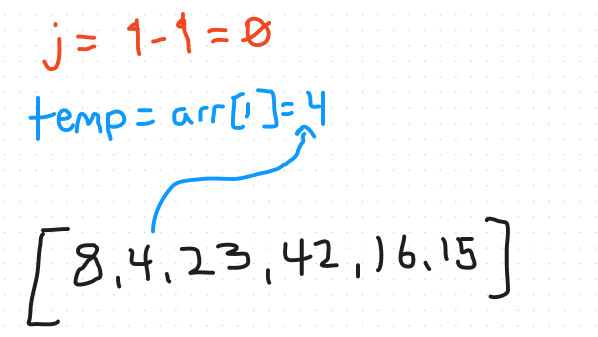 j = 1 - 1 = 0
temp = arr[1] = 4
[8, 4, 23, 42, 16, 15]